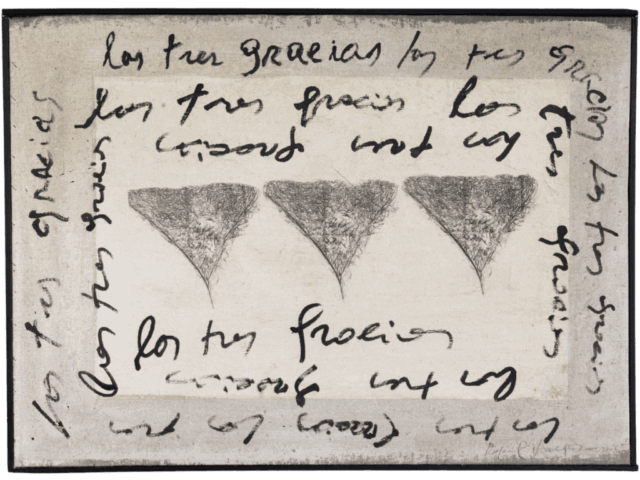 las tres gracias las tres gracias las tres gracias
las tres gracias las
tres gracias
las tres gracias
las tres gracias
las tres gracias
las tres gracias
las tres gracias
las tres gracias
las tres gracias las tres